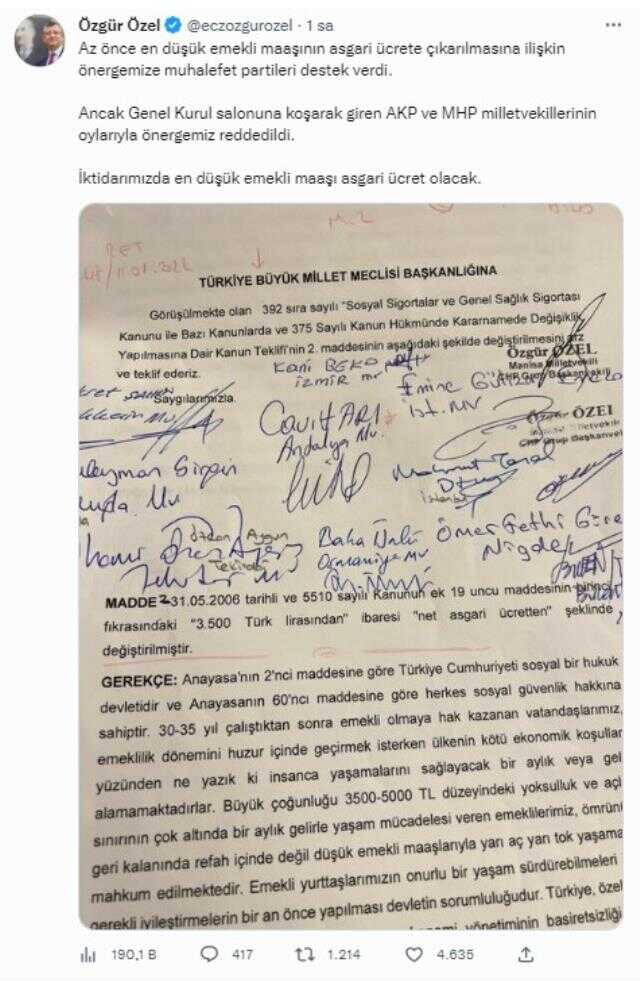 Özgür Özel @eczozgurozel · 1 sa
Az önce en düşük emekli maaşının asgari ücrete çıkarılmasına ilişkin
önergemize muhalefet partileri destek verdi.
Ancak Genel Kurul salonuna koşarak giren AKP ve MHP milletvekillerinin
oylarıyla önergemiz reddedildi.
İktidarımızda en düşük emekli maaşı asgari ücret olacak.
RET
TÜRKİYE BÜYÜK MİLLET MECLİSİ BAŞKANLIĞINA
Görüşülmekte olan 392 sıra sayılı "Sosyal Sigortalar ve Genel Sağlık Sigortası
Kanunu ile Bazı Kanunlarda ve 375 Sayılı Kanun Hükmünde Kararnamede Değişiklik
Yapılmasına Dair Kanun Teklifi'nin 2. maddesinin aşağıdaki şekilde değiştirilmesini arz
ve teklif ederiz.
Özgür ÖZEL
Manisa Milletvekili
Kani BEKO
İZMİR mv
Emine
İst. MV
Saygılarımızla.
Cavit ARI
Antalya Mv.
ÖZEL
Mahmut Tanal
Baha Ünlü
Osmaniye MV
Ömer Fethi
Niğde
Tekirdağ
MADDE 2-31.05.2006 tarihli ve 5510 sayılı Kanunun ek 19 uncu maddesinin birinci
fıkrasındaki "3.500 Türk lirasından" ibaresi "net asgari ücretten" şeklinde
değiştirilmiştir.
GEREKÇE: Anayasa'nın 2'nci maddesine göre Türkiye Cumhuriyeti sosyal bir hukuk
devletidir ve Anayasanın 60'ncı maddesine göre herkes sosyal güvenlik hakkına
sahiptir. 30-35 yıl çalıştıktan sonra emekli olmaya hak kazanan vatandaşlarımız,
emeklilik dönemini huzur içinde geçirmek isterken ülkenin kötü ekonomik koşullar
yüzünden ne yazık ki insanca yaşamalarını sağlayacak bir aylık veya gel
alamamaktadırlar. Büyük çoğunluğu 3500-5000 TL düzeyindeki yoksulluk ve açl
sınırının çok altında bir aylık gelirle yaşam mücadelesi veren emeklilerimiz, ömrünü
geri kalanında refah içinde değil düşük emekli maaşlarıyla yarı aç yarı tok yaşama
mahkum edilmektedir. Emekli yurttaşlarımızın onurlu bir yaşam sürdürebilmeleri
gerekli iyileştirmelerin bir an önce yapılması devletin sorumluluğudur. Türkiye, özel
yönetiminin basiretsizliği
190,1 B 417 1.214 4.635